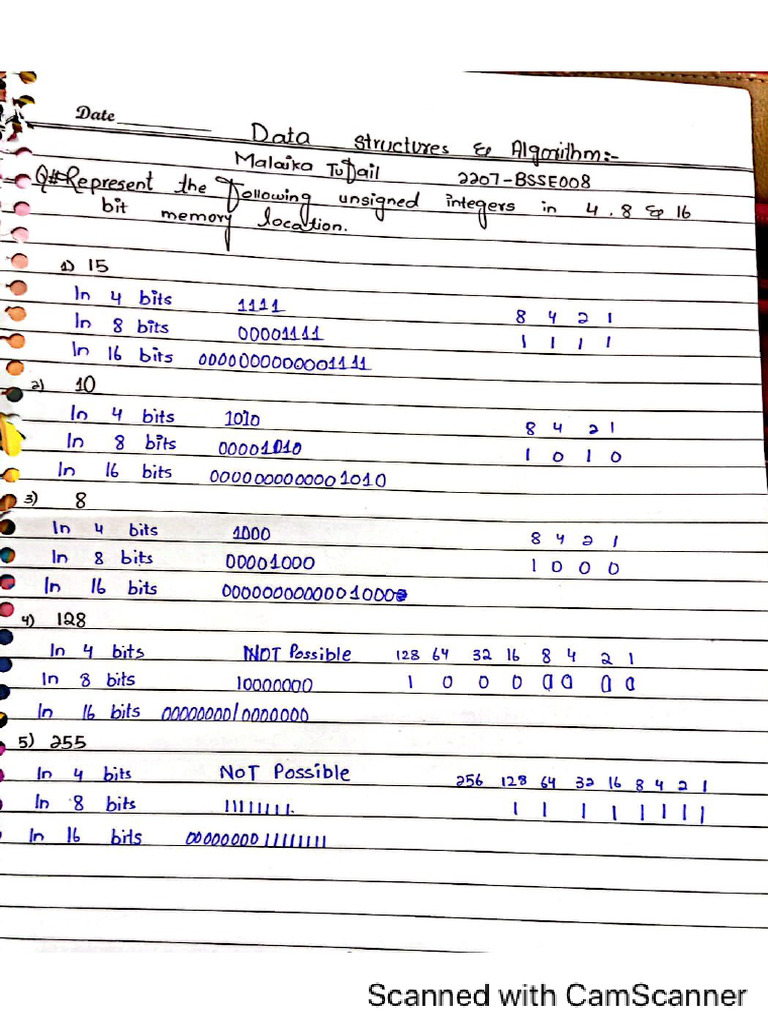 Date
Data Structures & Algorithm:-
Malaika Tufail 2207-BSSE008
Q# Represent the following unsigned integers in 4, 8 & 16
bit memory location.
1) 15
In 4 bits 1111 8 4 2 1
In 8 bits 00001111 1 1 1 1
In 16 bits 0000000000001111
2) 10
In 4 bits 1010 8 4 2 1
In 8 bits 00001010 1 0 1 0
In 16 bits 0000000000001010
3) 8
In 4 bits 1000 8 4 2 1
In 8 bits 00001000 1 0 0 0
In 16 bits 0000000000001000
4) 128
In 4 bits NOT Possible 128 64 32 16 8 4 2 1
In 8 bits 10000000 1 0 0 0 0 0 0 0
In 16 bits 0000000010000000
5) 255
In 4 bits NOT Possible 256 128 64 32 16 8 4 2 1
In 8 bits 11111111. 1 1 1 1 1 1 1 1
In 16 bits 0000000011111111
Scanned with CamScanner